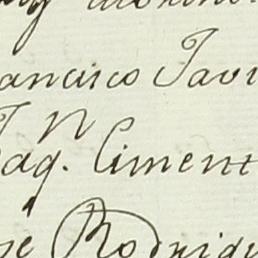 ancisco Javi
N
aq. Ciment
sé Rodrigu